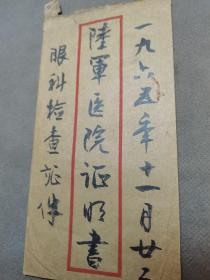 一九六五年十一月廿二
陸軍医院証明書
眼科检查证件